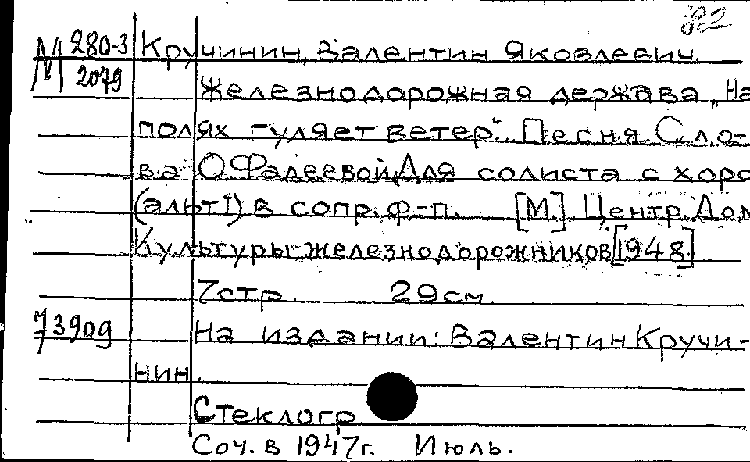 82
М 280-3 Кручинин, Валентин Яковлевич
2079
Железнодорожная держава „На
полях гуляет ветер". Песня. Сло-
ва О. Фадеевой. Для солиста с хоро
(альт I) в сопр. ф-п. [М.] Центр. Дом
Культуры железнодорожников [1948]
7 стр. 29 см
73909 На издании: Валентин Кручи-
нин.
Стеклогр
Соч. в 1947 г. Июль.